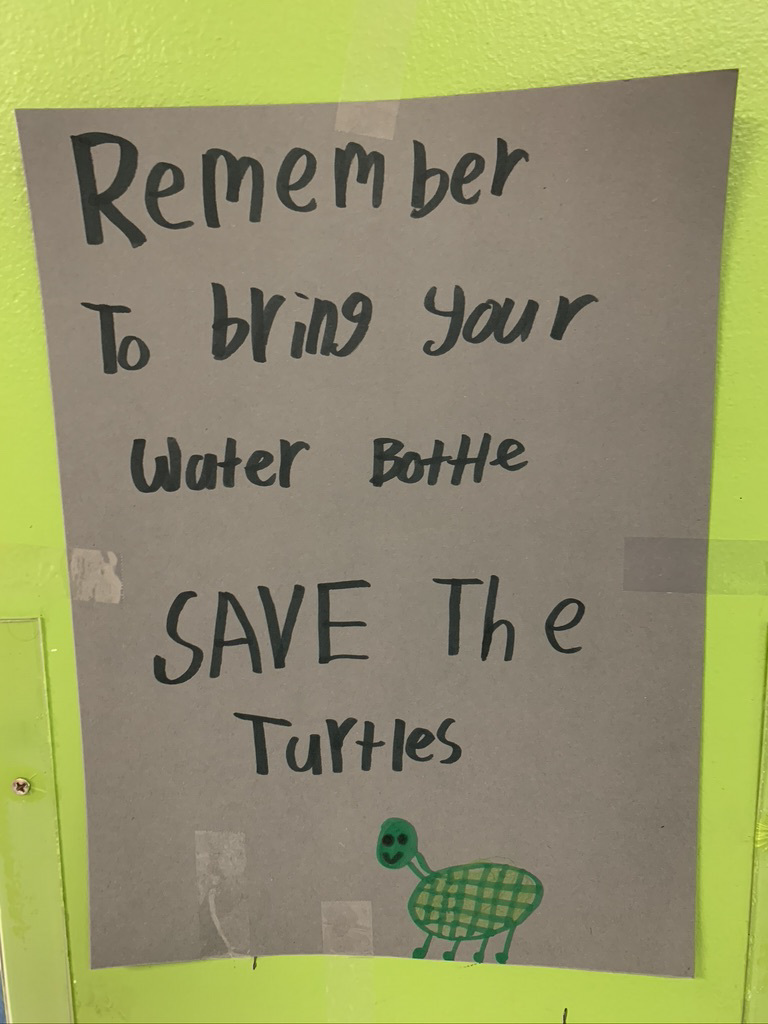 Remember
To bring your
Water Bottle
SAVE The
Turtles